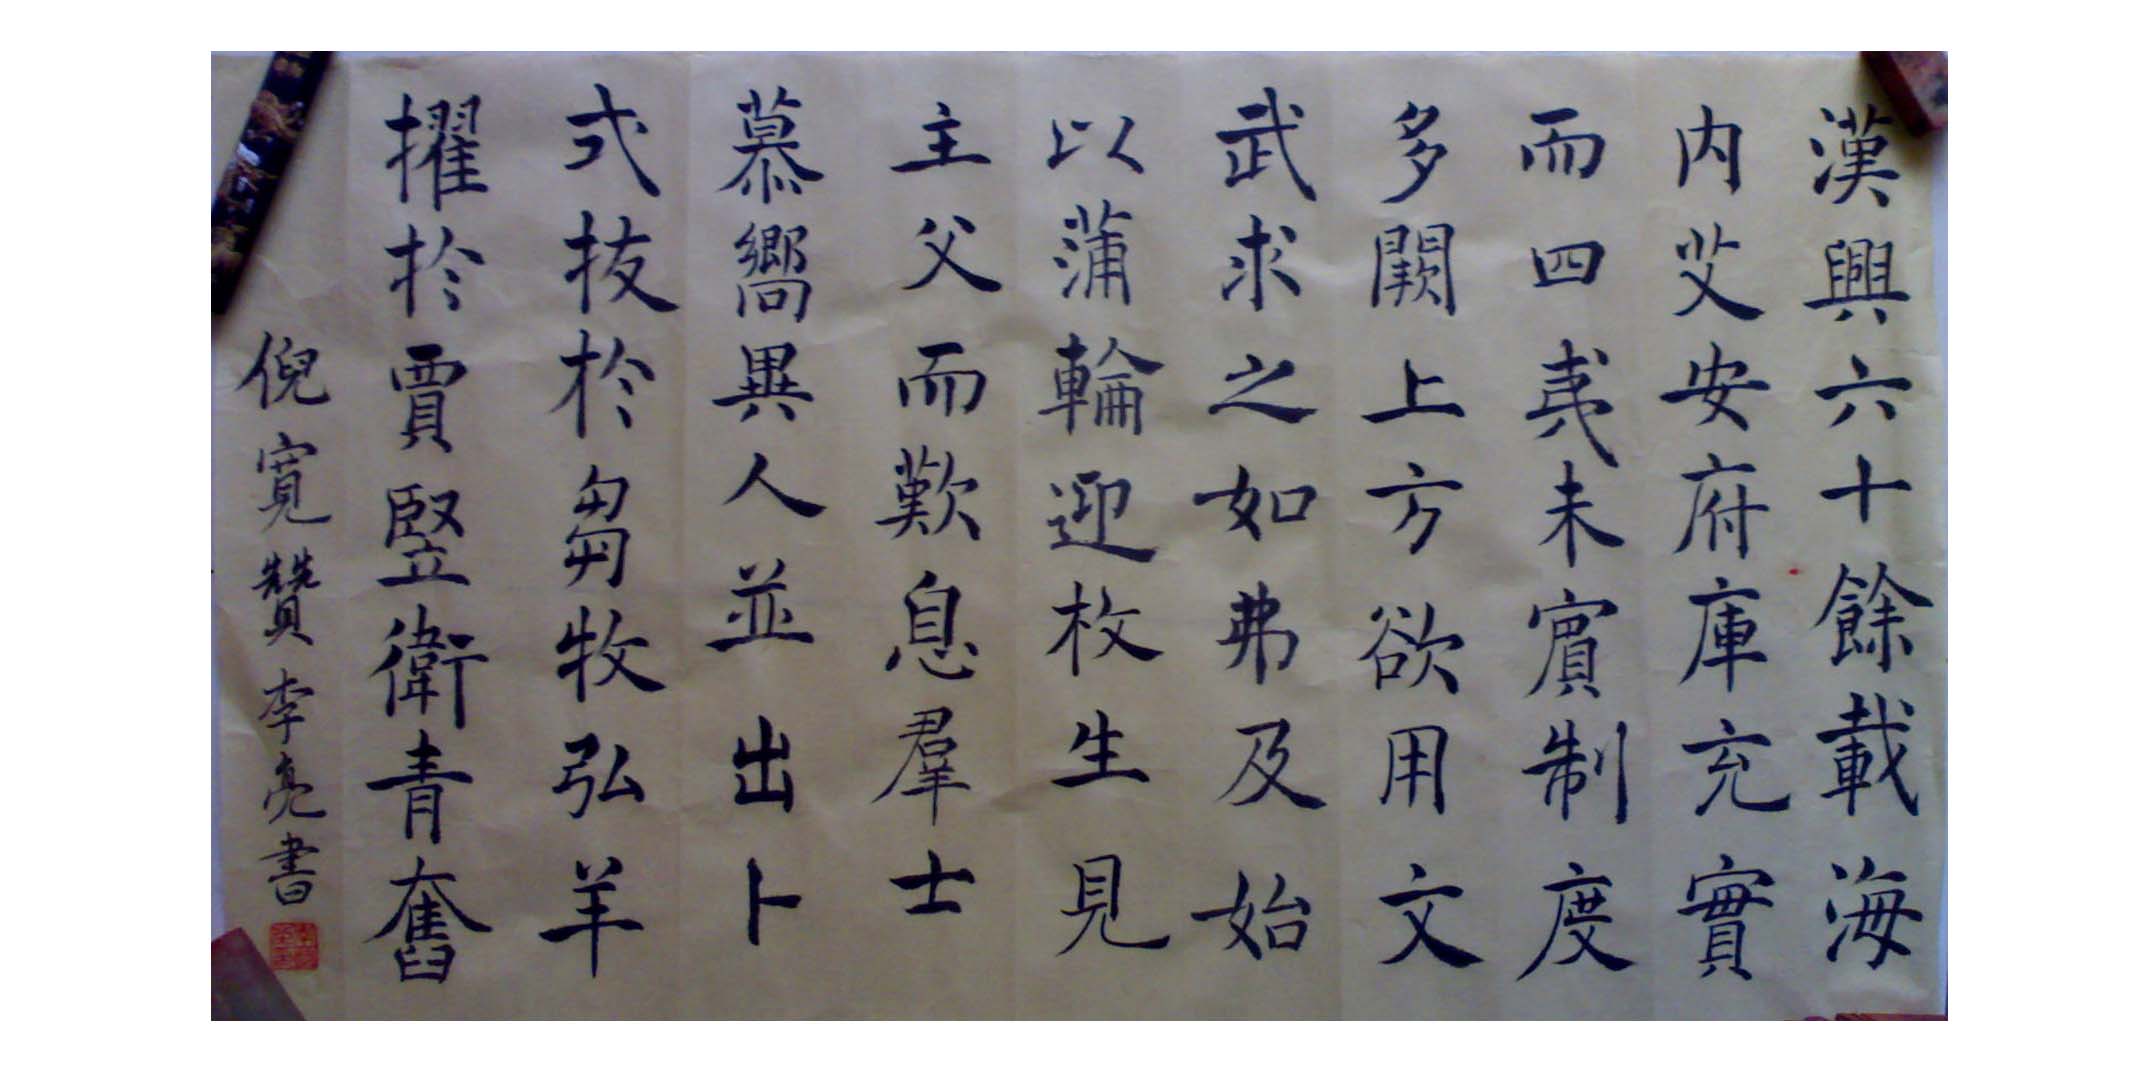 漢興六十餘載海
内艾安府庫充實
而四夷未賔制度
多闕上方欲用文
武求之如弗及始
以蒲輪迎枚生見
主父而歎息羣士
慕嚮異人並出卜
式拔於芻牧弘羊
擢於賈豎衛青奮
倪寬贊李亮書